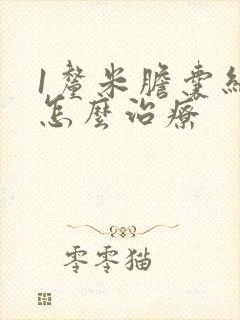 1釐米膽囊結
怎麼治療
零零猫